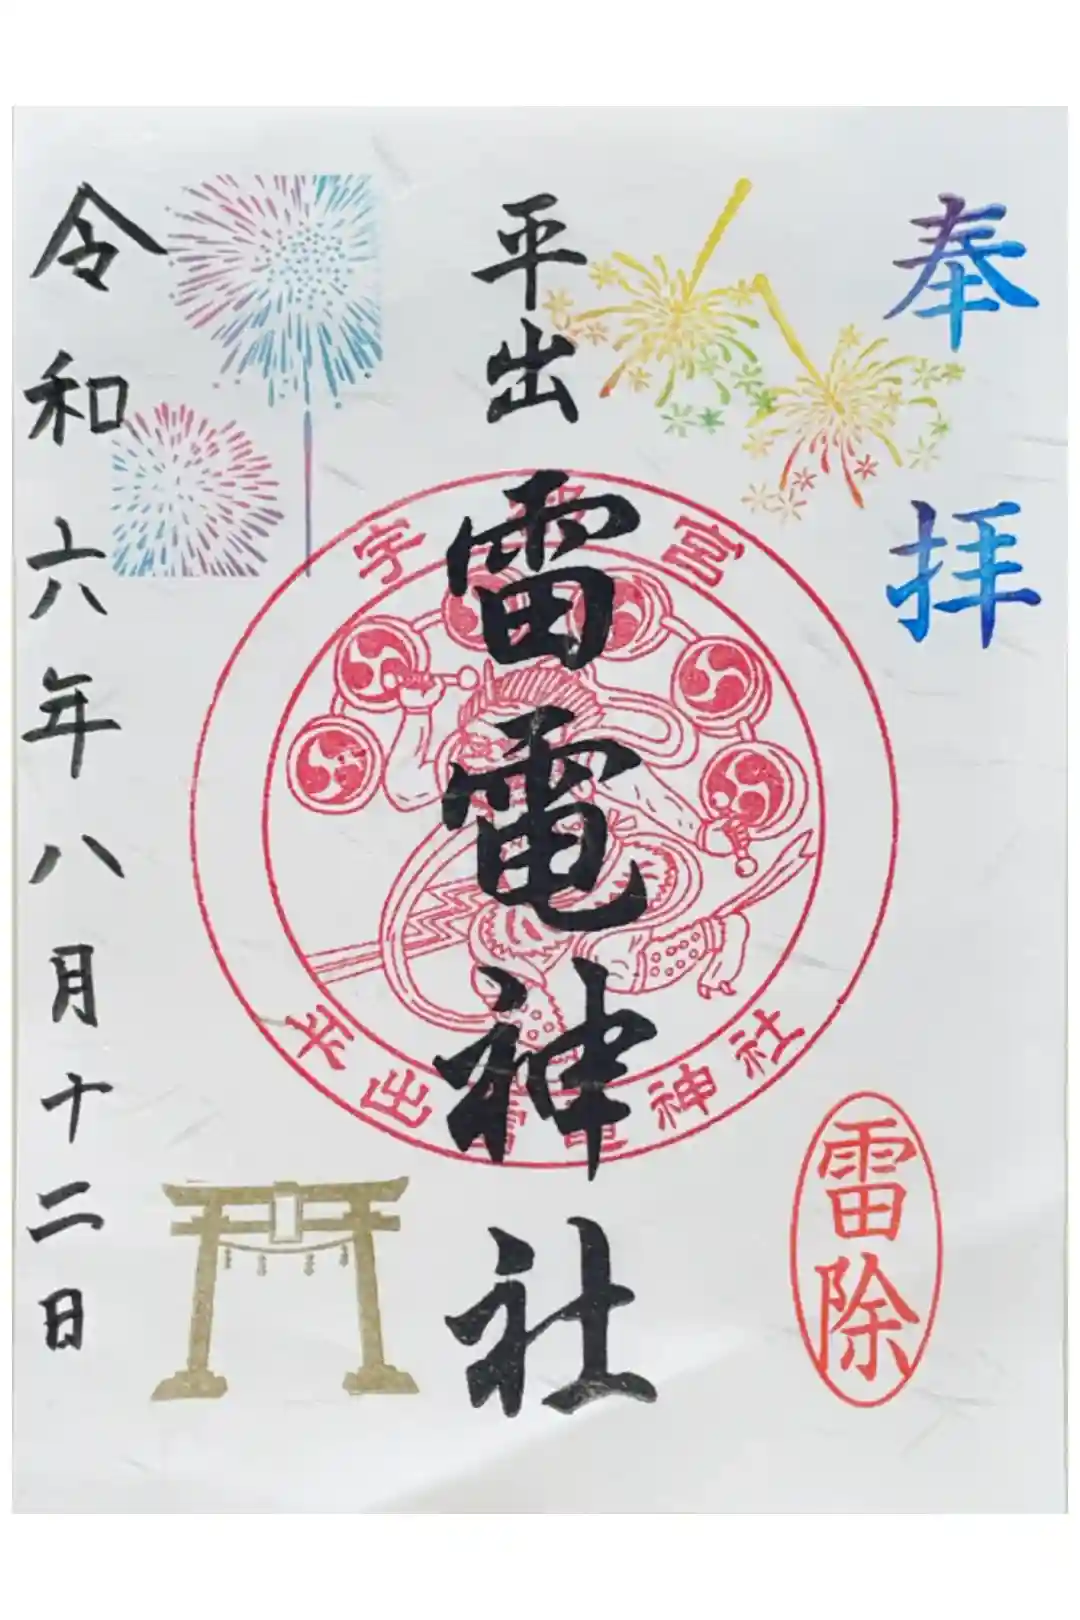 奉拝
平出
雷電神社
宇都宮
平出雷電神社
雷除
令和六年八月十二日